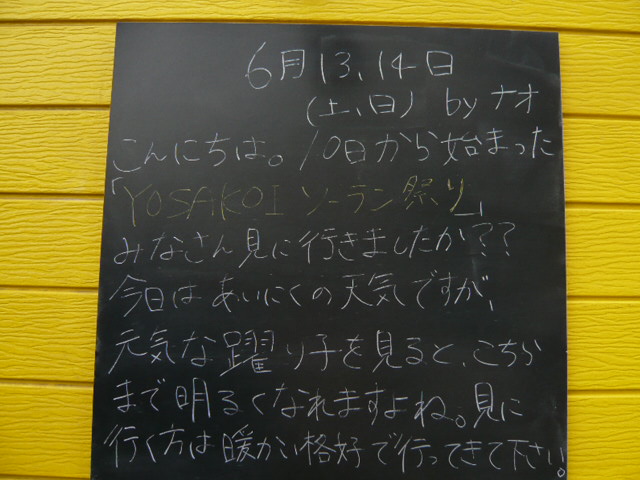 6月13、14日
(土、日) by ナオ
こんにちは。10日から始まった
「YOSAKOI ソーラン祭り」
みなさん見に行きましたか??
今日はあいにくの天気ですが、
元気な躍り子を見ると、こちら
まで明るくなれますよね。見に
行く方は暖かい格好で行ってきて下さい。